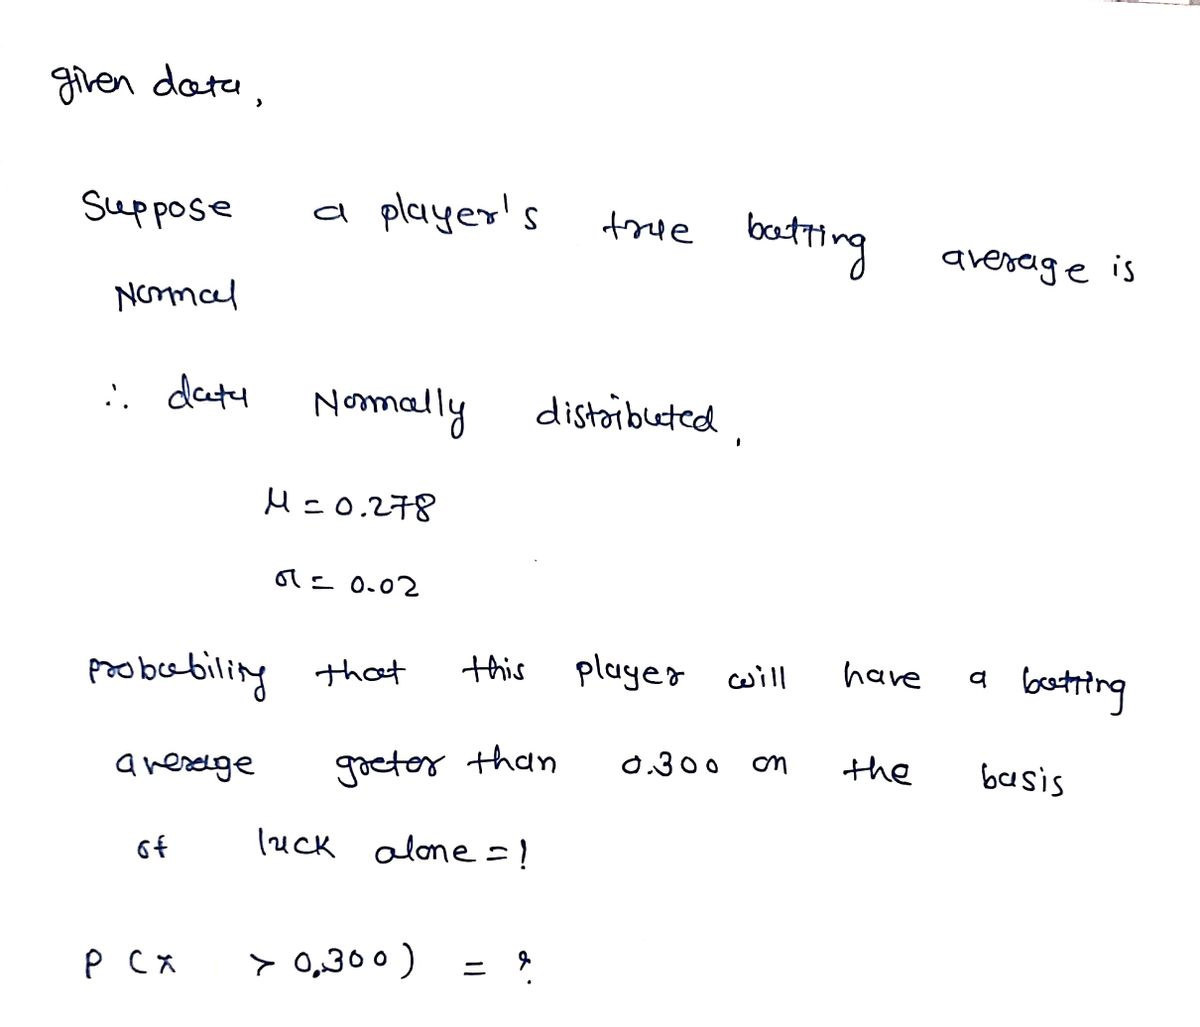 given data,
Suppose a player's true batting average is
Normal
∴ data Normally distributed,
μ = 0.278
σ = 0.02
probability that this player will have a batting
average greter than 0.300 on the basis
of luck alone = !
P (x > 0.300) = ?